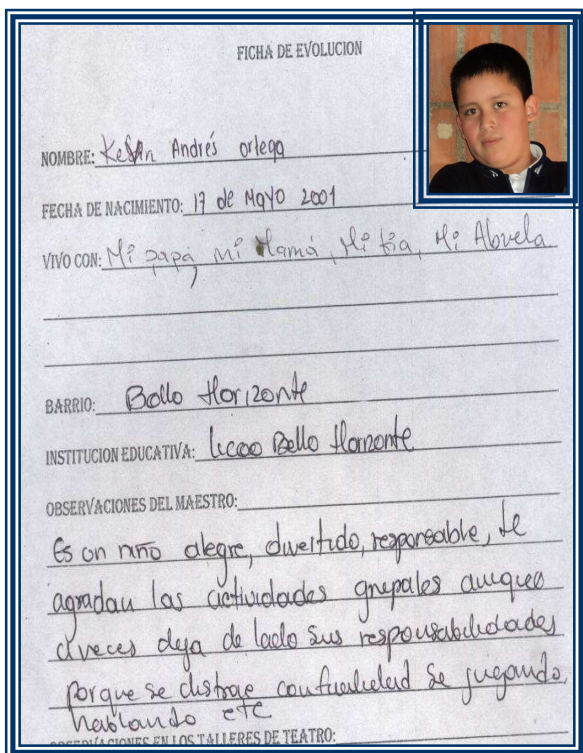 FICHA DE EVOLUCION
NOMBRE: Kevin Andrés ortega
FECHA DE NACIMIENTO: 17 de MaYO 2001
VIVO CON: Mi papá, mi Mamá, Mi tía, Mi Abuela
BARRIO: Bello Horizonte
INSTITUCION EDUCATIVA: liceo Bello Horizonte
OBSERVACIONES DEL MAESTRO:
Es un niño alegre, divertido, responsable, le
agradan las actividades grupales aunque
a veces deja de lado sus responsabilidades
porque se distrae con facilidad se jugando,
hablando etc
OBSERVACIONES EN LOS TALLERES DE TEATRO: